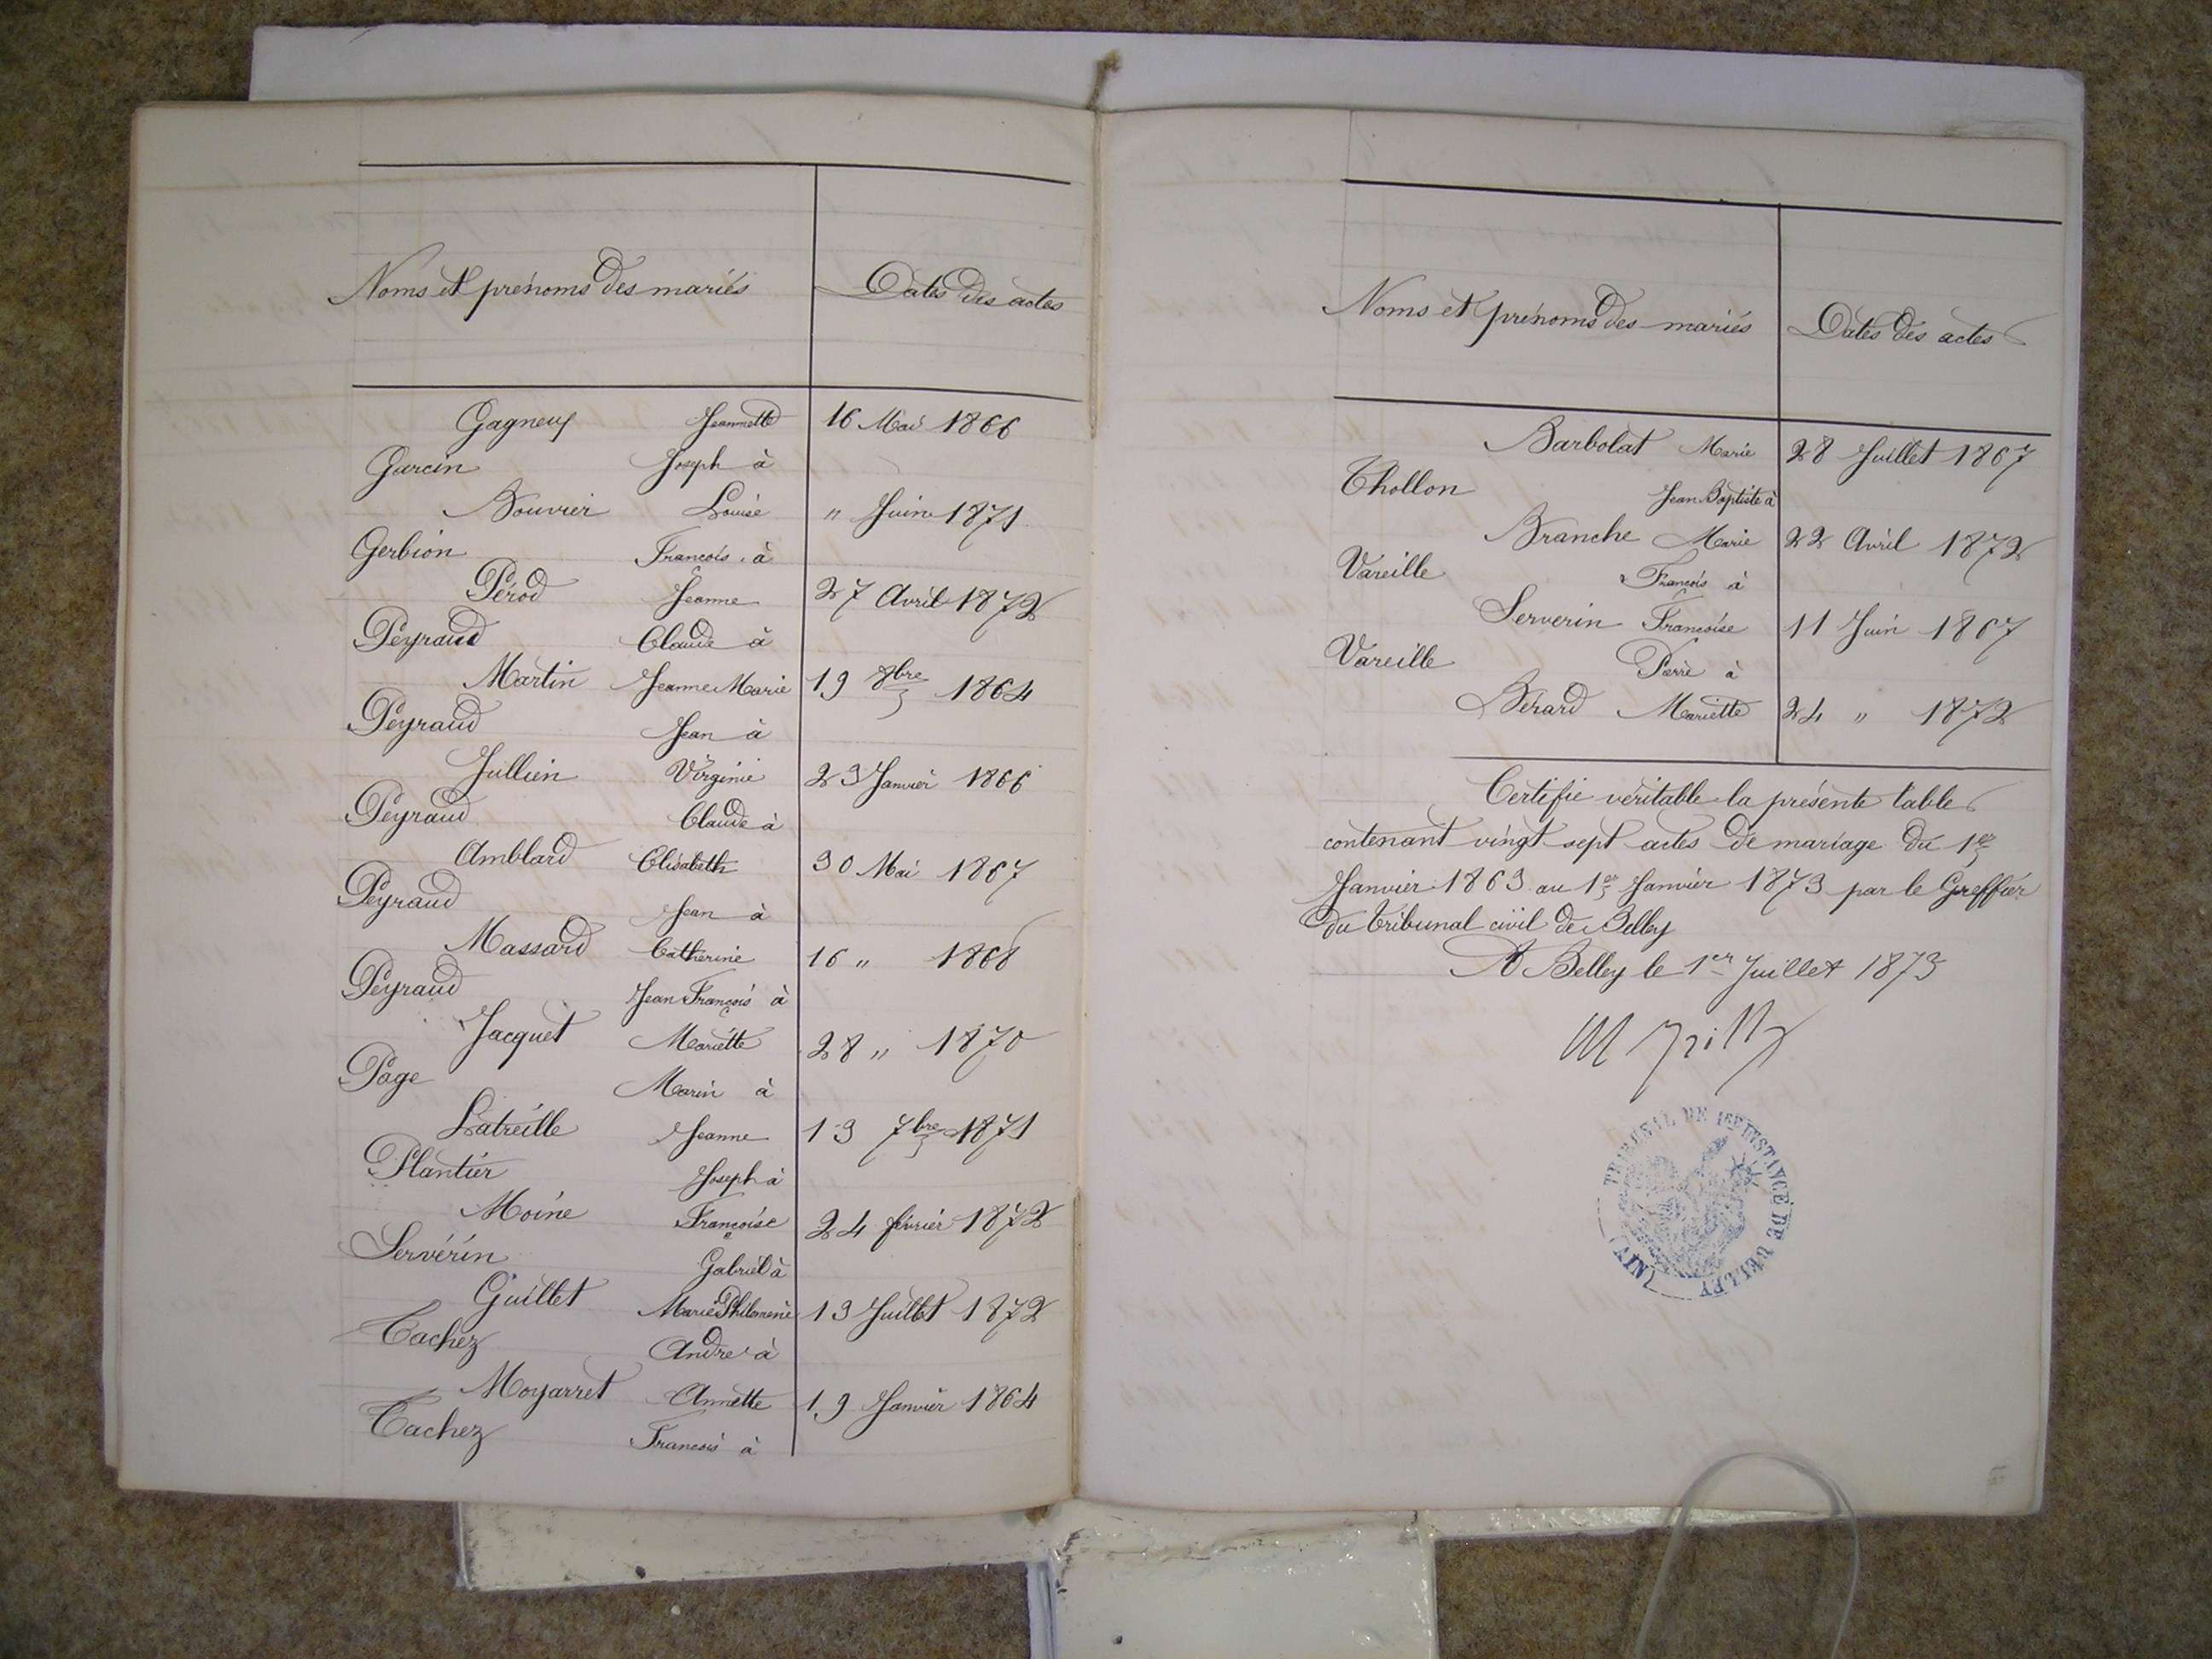 Noms et prénoms des mariés Dates des actes
Gagneux Jeannette 16 Mai 1866
Garcin Joseph à
Bouvier Louise " Juin 1871
Gerbion François à
Pérod Jeanne 27 Avril 1872
Peyraud Claude à
Martin Jeanne Marie 19 8bre 1864
Peyraud Jean à
Jullien Virginie 23 Janvier 1866
Peyraud Claude à
Amblard Elisabeth 30 Mai 1867
Peyraud Jean à
Massard Catherine 16 " 1868
Peyraud Jean François à
Jacquet Mariette 28 " 1870
Page Marin à
Latreille Jeanne 13 7bre 1871
Plantier Joseph à
Moine Françoise 24 février 1872
Servérin Gabriel à
Guillet Marie Philomène 13 Juillet 1872
Tachez André à
Moyarret Annette 19 Janvier 1864
Tachez François à
Noms et prénoms des mariés Dates des actes
Barbolat Marie 28 Juillet 1867
Thollon Jean Baptiste à
Branche Marie 22 Avril 1872
Vareille François à
Serverin Françoise 11 Juin 1867
Vareille Pierre à
Bérard Mariette 24 " 1872
Certifié véritable la présente table
contenant vingt sept actes de mariage du 1er
Janvier 1863 au 1er Janvier 1873 par le Greffier
du tribunal civil de Belley
A Belley le 1er Juillet 1873
TRIBUNAL DE 1ERE INSTANCE DE BELLEY (AIN)